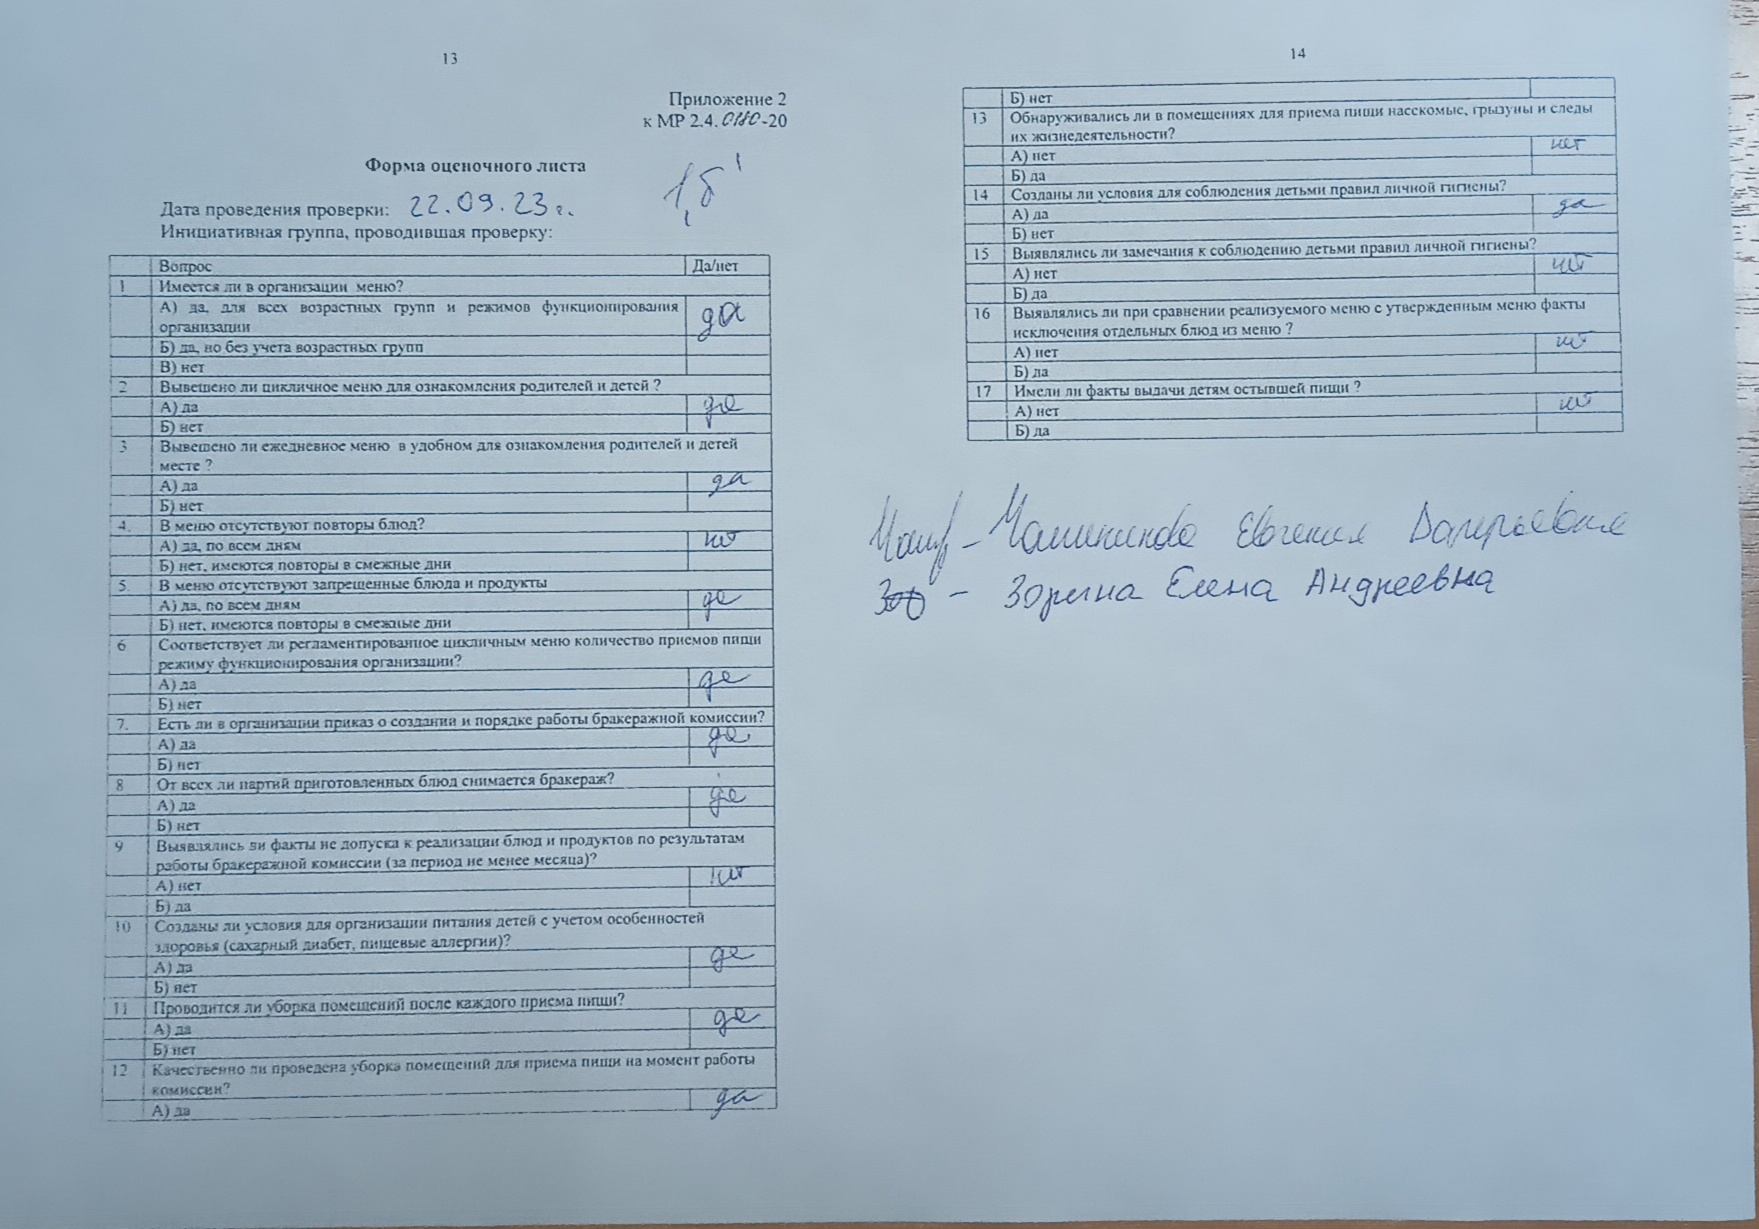 13
Приложение 2
к МР 2.4.0180-20
Форма оценочного листа
1,5'
Дата проведения проверки: 22.09.23 г.
Инициативная группа, проводившая проверку:
Вопрос Да/нет
1 Имеется ли в организации меню?
А) да, для всех возрастных групп и режимов функционирования
организации да
Б) да, но без учета возрастных групп
В) нет
2 Вывешено ли цикличное меню для ознакомления родителей и детей ?
А) да да
Б) нет
3 Вывешено ли ежедневное меню в удобном для ознакомления родителей и детей
месте ?
А) да да
Б) нет
4. В меню отсутствуют повторы блюд?
А) да, по всем дням нет
Б) нет, имеются повторы в смежные дни
5. В меню отсутствуют запрещенные блюда и продукты
А) да, по всем дням да
Б) нет, имеются повторы в смежные дни
6 Соответствует ли регламентированное цикличным меню количество приемов пищи
режиму функционирования организации?
А) да да
Б) нет
7. Есть ли в организации приказ о создании и порядке работы бракеражной комиссии?
А) да да
Б) нет
8 От всех ли партий приготовленных блюд снимается бракераж?
А) да да
Б) нет
9 Выявлялись ли факты не допуска к реализации блюд и продуктов по результатам
работы бракеражной комиссии (за период не менее месяца)?
А) нет нет
Б) да
10 Созданы ли условия для организации питания детей с учетом особенностей
здоровья (сахарный диабет, пищевые аллергии)?
А) да да
Б) нет
11 Проводится ли уборка помещений после каждого приема пищи?
А) да да
Б) нет
12 Качественно ли проведена уборка помещений для приема пищи на момент работы
комиссии?
А) да да
14
Б) нет
13 Обнаруживались ли в помещениях для приема пищи насекомые, грызуны и следы
их жизнедеятельности?
А) нет нет
Б) да
14 Созданы ли условия для соблюдения детьми правил личной гигиены?
А) да да
Б) нет
15 Выявлялись ли замечания к соблюдению детьми правил личной гигиены?
А) нет нет
Б) да
16 Выявлялись ли при сравнении реализуемого меню с утвержденным меню факты
исключения отдельных блюд из меню ?
А) нет нет
Б) да
17 Имели ли факты выдачи детям остывшей пищи ?
А) нет нет
Б) да
Евгения Валерьевна
– Зорина Елена Андреевна